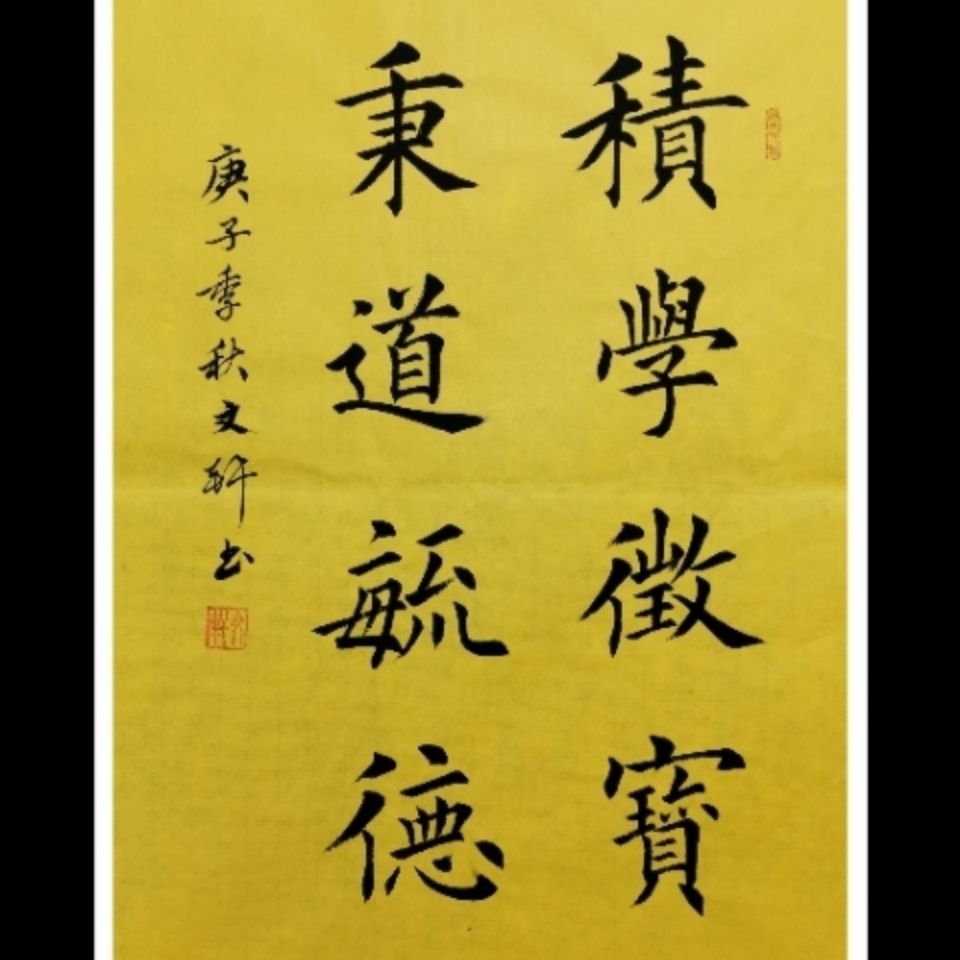 積學徵寶
秉道毓德
庚子季秋文軒书